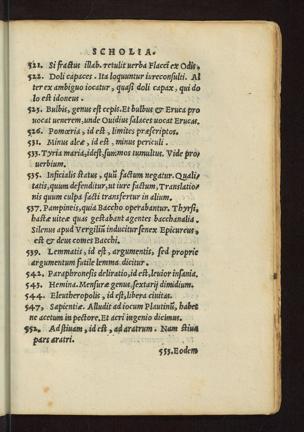 SCHOLIA.
521. Si fractus illab. retulit verba Flacci ex Odis.
522. Doli capaces. Ita loquuntur iureconsulti. Al
ter ex ambiguo iocatur, quasi doli capax, qui do
lo est idoneus.
525. Bulbis, genus est cepis. Et bulbus & Eruca pro
uocat uenerem, unde Ouidius salaces uocat Erucas.
526. Pomœria, id est, limites præscriptos.
531. Minus aleæ, id est, minus periculi.
533. Tyria maria, id est, summos tumultus. Vide pro
uerbium.
535. Inficialis status, quũ factum negatur. Quali
tatis, quum defenditur, ut iure factum, Translatio-
nis quum culpa facti transfertur in alium.
537. Pampineis, quia Baccho operabantur. Thyrsi,
hastæ uiteæ quas gestabant agentes bacchanalia.
Silenus apud Vergiliũ inducitur senex Epicureus,
est & deus comes Bacchi.
539. Lemmatis, id est, argumentis, sed proprie
argumentum futile lemma. dicitur.
542. Paraphronesis deliratio, id est, leuior insania.
543. Hemina. Mensuræ genus, sextarij dimidium.
544. Eleutheropolis, id est, libera ciuitas.
547. Sapientiæ. Alludit ad iocum Plautinũ, habet
ne acetum in pectore. Et acri ingenio dicimus.
552. Ad stiuam, id est, ad aratrum. Nam stiua
pars aratri.
553. Eodem